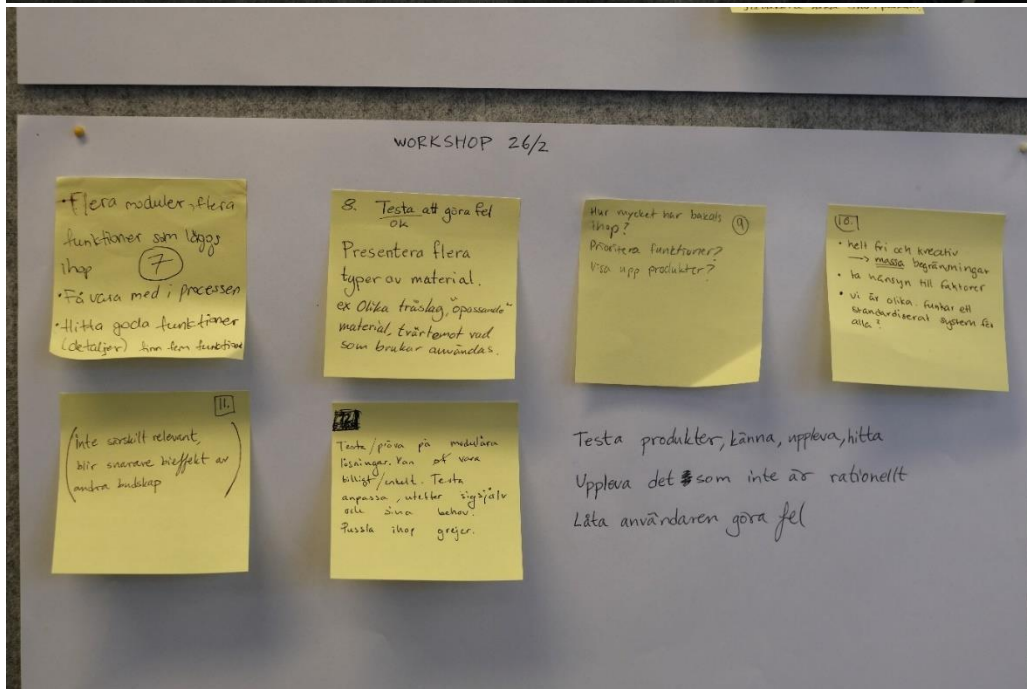 WORKSHOP 26/2
• Flera moduler, flera
funktioner som läggs
ihop 7
• Få vara med i processen
• Hitta goda funktioner
(detaljer) hm fem
8. Testa att göra fel
ok
Presentera flera
typer av material.
ex Olika träslag, "opassande"
material, tvärtemot vad
som brukar användas.
Hur mycket har bakats
ihop? 9
Prioritera funktioner?
Visa upp produkter?
10.
• helt fri och kreativ
→ massa begränsningar
• ta hänsyn till faktorer
• vi är olika. Funkar ett
standardiserat system för
alla?
11.
(Inte särskilt relevant,
blir snarare bieffekt av
andra budskap)
12.
Testa/pröva på modulära
lösningar. Kan vara
billigt/enkelt. Testa
anpassa, utefter sig själv
och sina behov.
Pussla ihop grejer.
Testa produkter, känna, uppleva, hitta
Uppleva det som inte är rationellt
Låta användaren göra fel